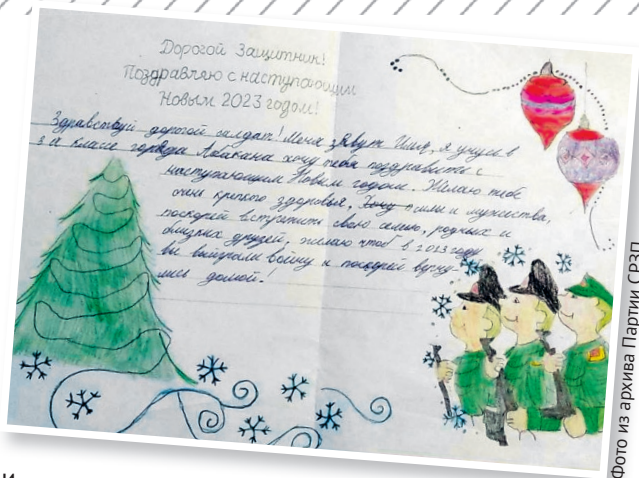 Дорогой Защитник!
Поздравляю с наступающим
Новым 2023 годом!
Здравствуй дорогой салдат! Меня завут я учусь в
3 а класе города Абакана хочу тебя поздравить с
наступающим Новым годом. Желаю тебе
очень крепкого здоровья, силы и мужества,
поскарей встретить свою семью, родных и
близких друзей, желаю чтоб в 2023 году
вы выиграли войну и поскарей верну-
лись домой!
Фото из архива Партии СРЗП
и